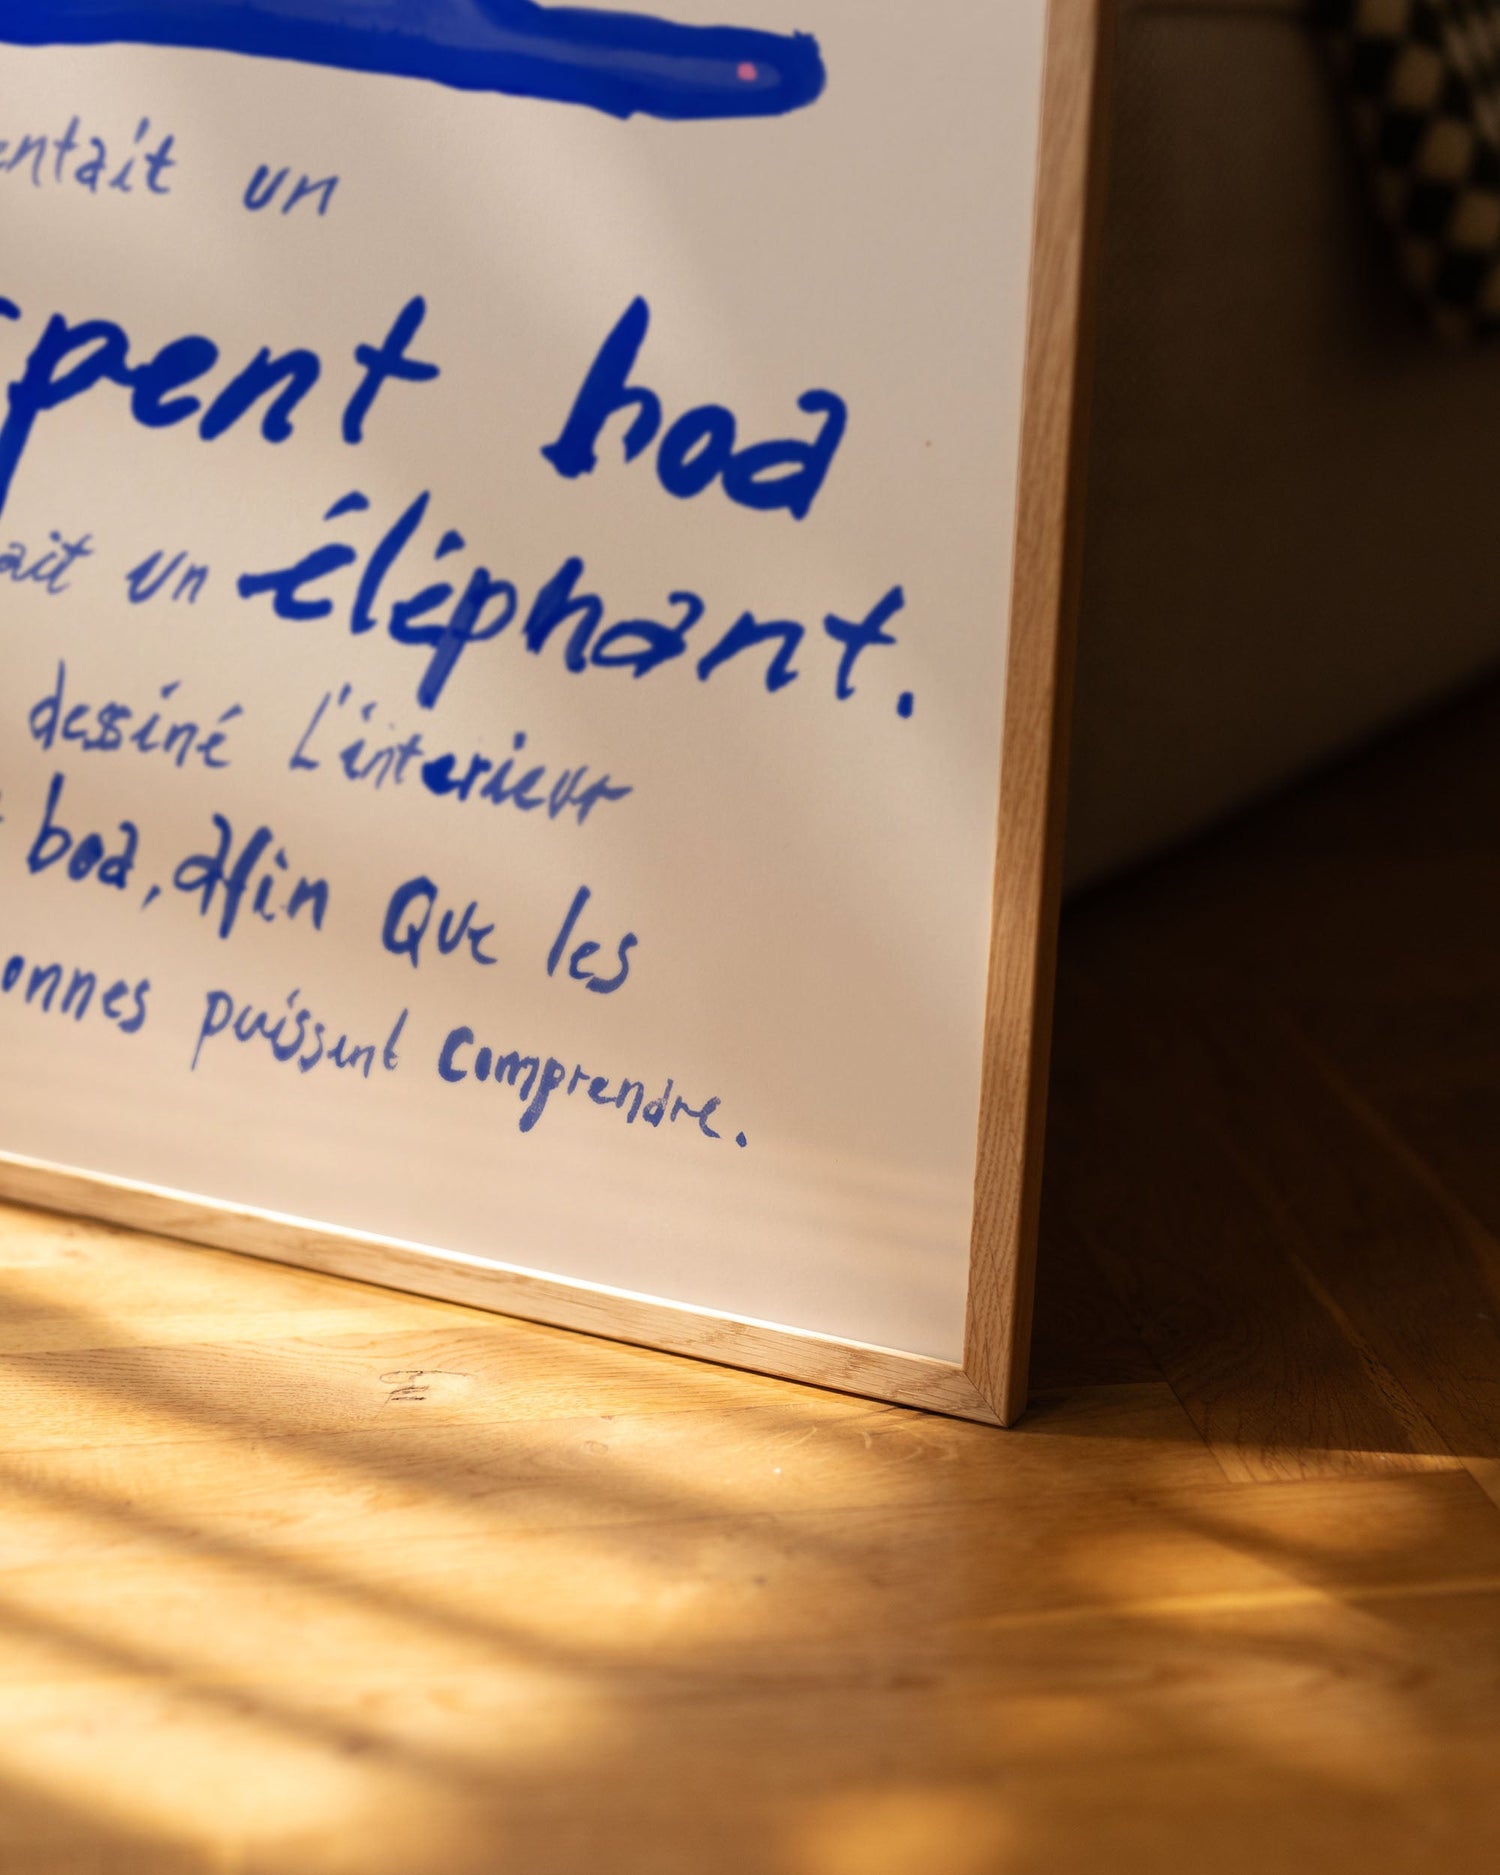 entait un
spent boa
ait un éléphant.
dessiné L'interieur
boa, afin Que les
onnes puissent Comprendre.